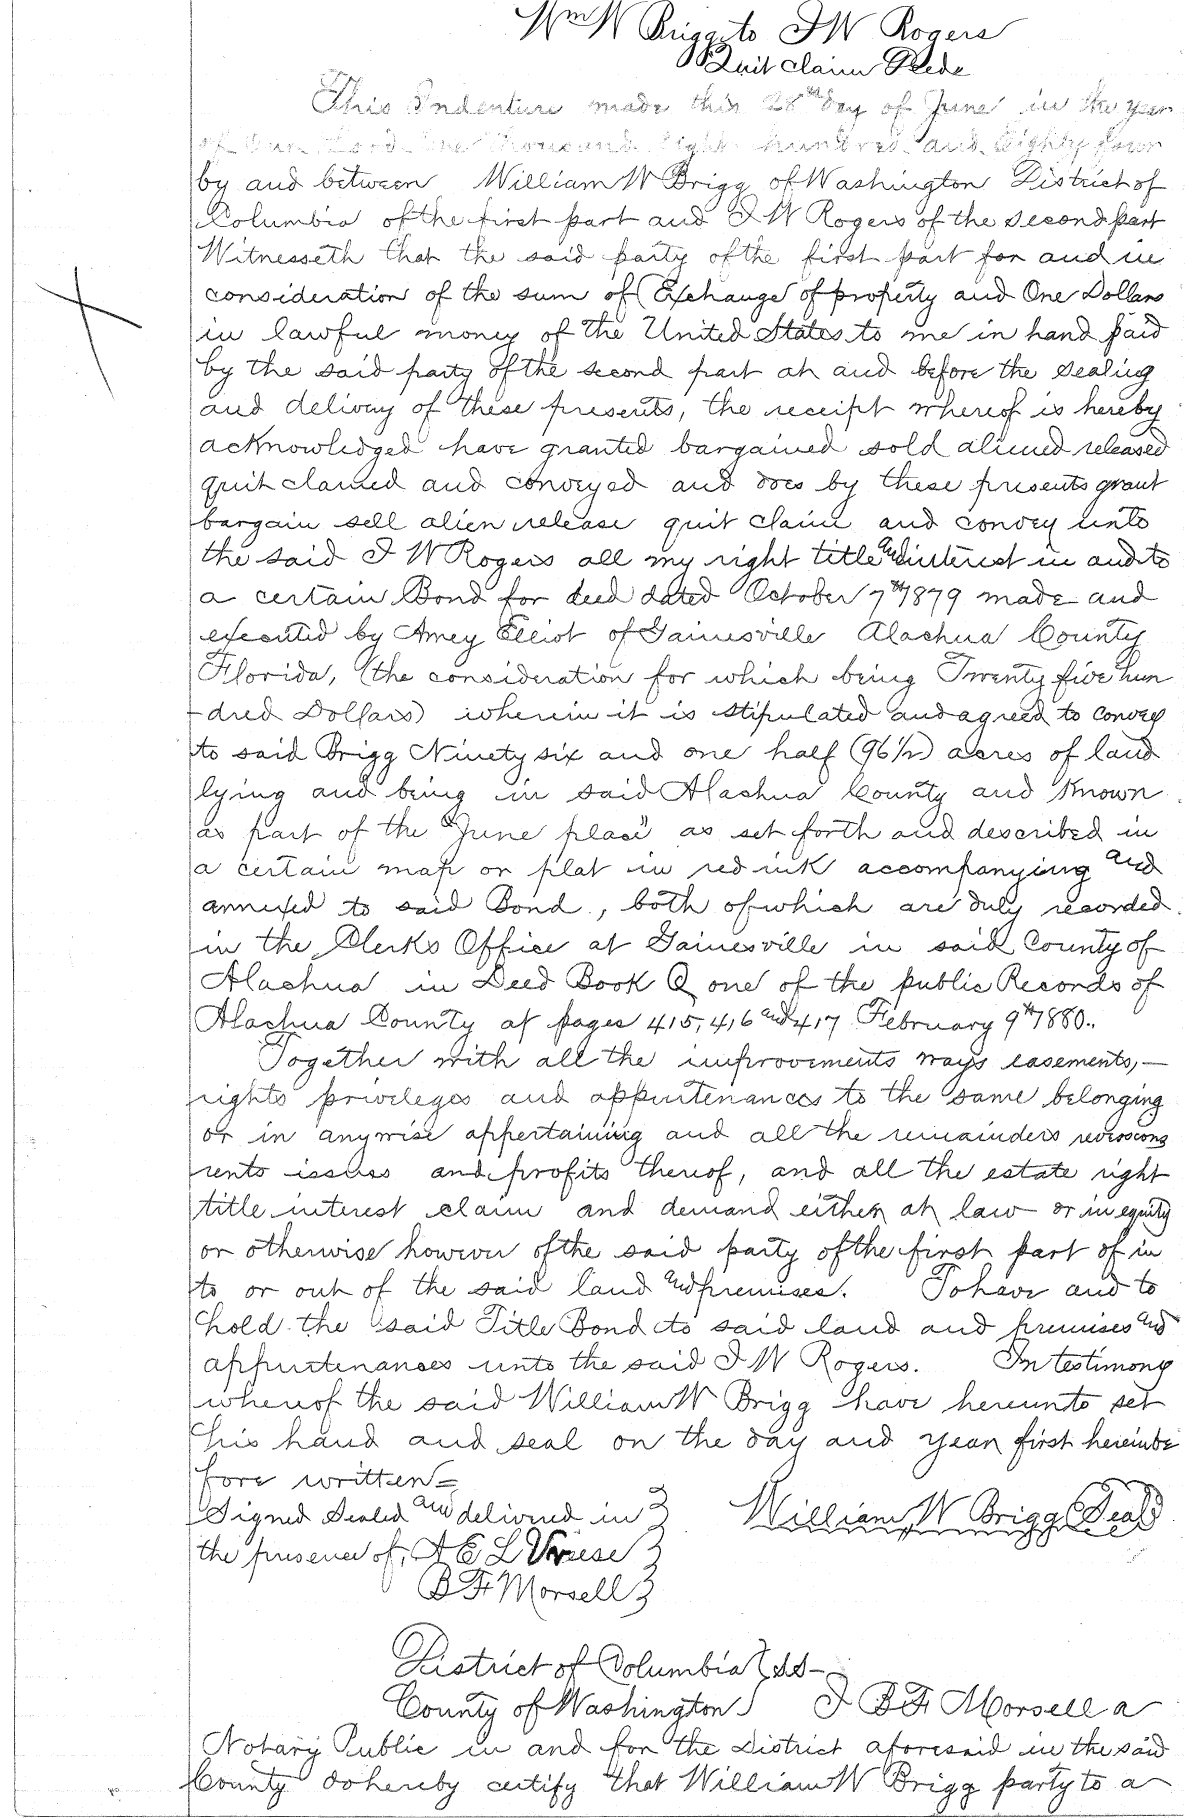 Wm W Brigg to J W Rogers
Quit Claim Dede
This Indenture made this 28th day of June in the year
of Our Lord One thousand eight hundred and Eighty four
by and between William W Brigg of Washington District of
Columbia of the first part and J W Rogers of the second part
Witnesseth that the said party of the first part for and in
consideration of the sum of (Exchange of property and One Dollars
in lawful money of the United States to me in hand paid
by the said party of the second part at and before the sealing
and delivery of these presents, the receipt whereof is hereby
acknowledged have granted bargained sold aliened released
quit claimed and conveyed and does by these presents grant
bargain sell alien release quit claim and convey unto
the said J W Rogers all my right title and interest in and to
a certain Bond for deed dated October 7th 1879 made and
executed by Amey Elliot of Gainesville Alachua County
Florida, (the consideration for which being Twenty five hun
-dred Dollars) wherein it is stipulated and agreed to convey
to said Brigg Ninety six and one half (96 1/2) acres of land
lying and being in said Alachua County and Known
as part of the "June place" as set forth and described in
a certain map or plat in red ink accompanying and
annexed to said Bond, both of which are duly recorded
in the Clerks Office at Gainesville in said County of
Alachua in Deed Book Q one of the public Records of
Alachua County at pages 415, 416 and 417 February 9th 1880.
Together with all the improvements ways easements,—
rights privileges and appurtenances to the same belonging
or in anywise appertaining and all the remainders reversions
rents issues and profits thereof, and all the estate right
title interest claim and demand either at law or in equity
or otherwise however of the said party of the first part of in
to or out of the said land and premises. To have and to
hold the said Title Bond to said land and premises and
appurtenances unto the said J W Rogers. In testimony
whereof the said William W Brigg have hereunto set
his hand and seal on the day and year first hereinbe
fore written=
Signed Sealed and delivered in } William W Brigg (Seal)
the presence of, A E L }
B F Morsell }
District of Columbia } SS-
County of Washington } I B F Morsell a
Notary Public in and for the District aforesaid in the said
County do hereby certify that William W Brigg party to a